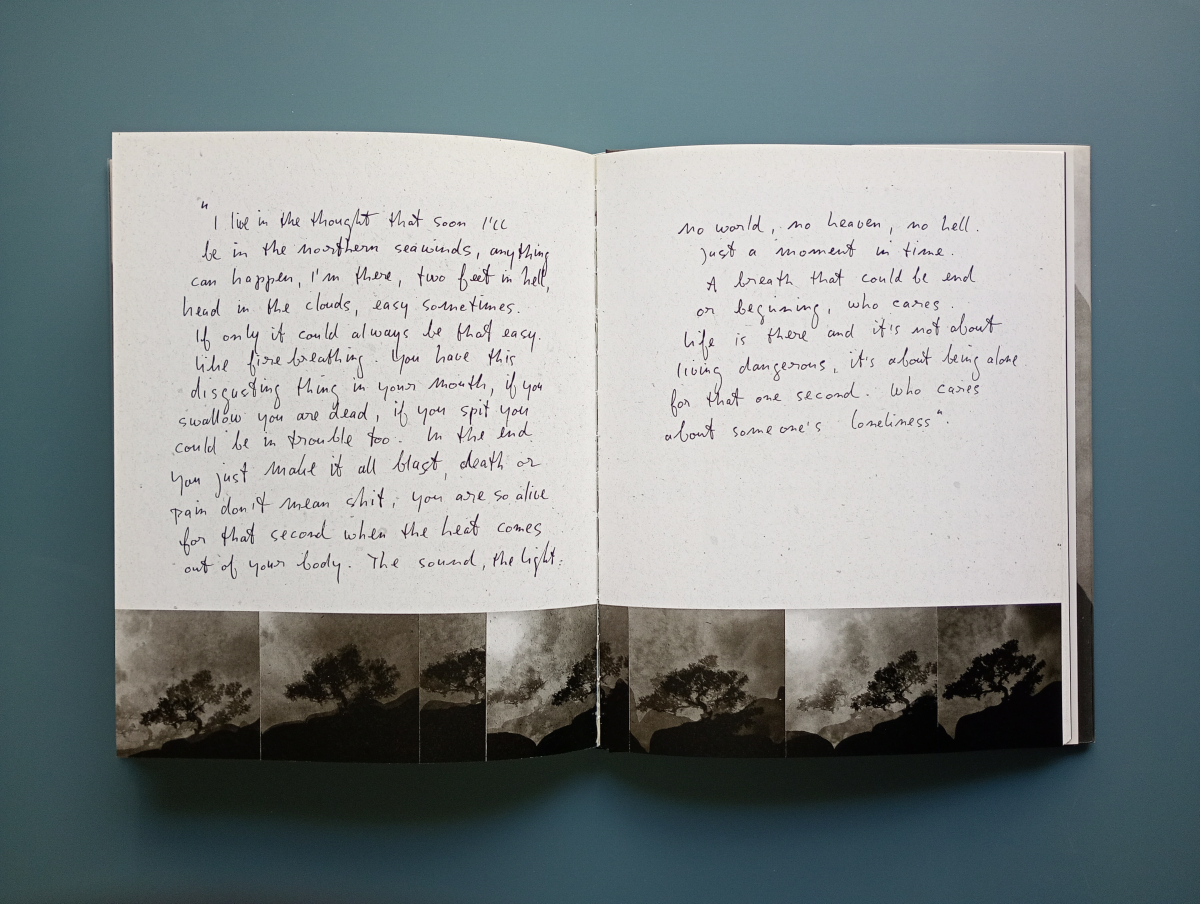 "I live in the thought that soon I'll
be in the northern seawinds, anything
can happen, I'm there, two feet in hell,
head in the clouds, easy sometimes.
If only it could always be that easy.
Like fire breathing. You have this
disgusting thing in your mouth, if you
swallow you are dead, if you spit you
could be in trouble too. In the end
you just make it all blast, death or
pain don't mean shit, you are so alive
for that second when the heat comes
out of your body. The sound, the light:
no world, no heaven, no hell.
Just a moment in time.
A breath that could be end
or beginning, who cares.
Life is there and it's not about
living dangerous, it's about being alone
for that one second. Who cares
about someone's loneliness".